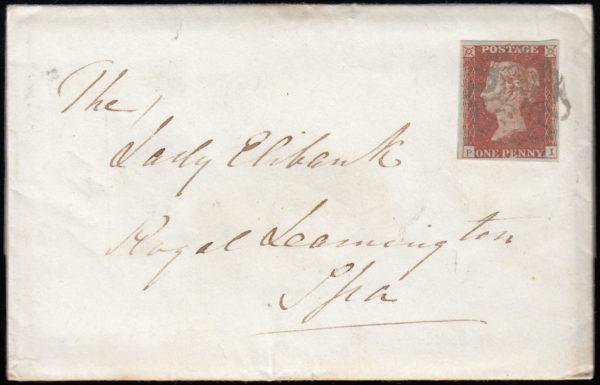 POSTAGE
ONE PENNY
P I
The
Lady Elibank
Royal Leamington
Spa